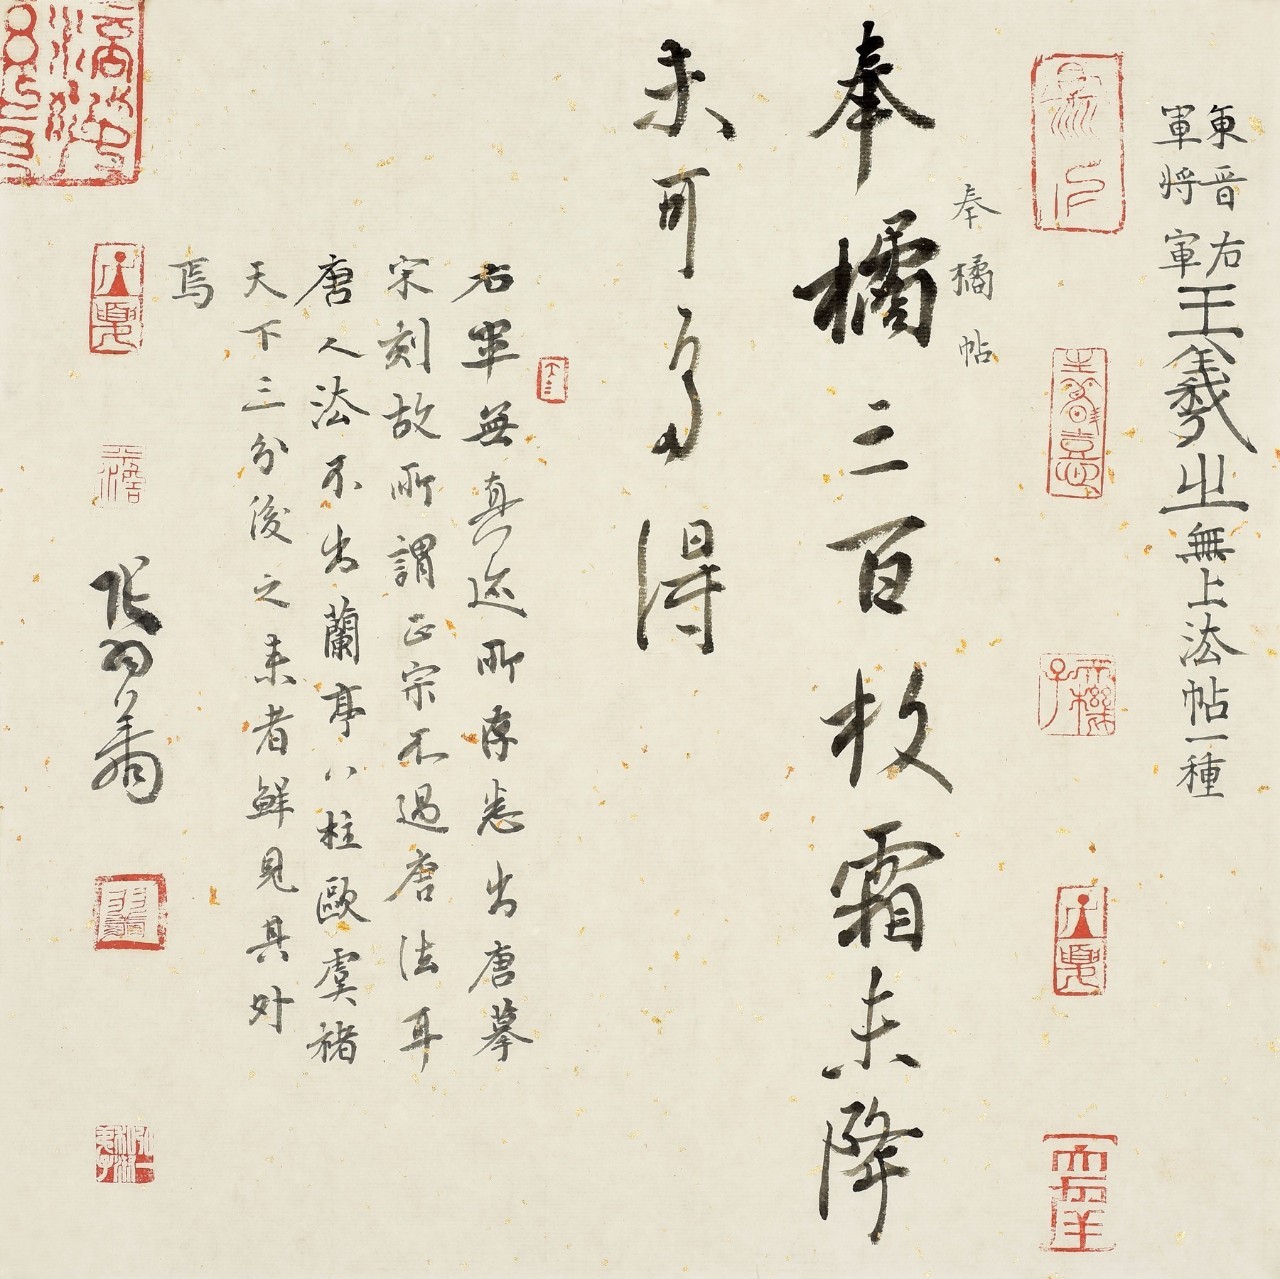 東晋右
軍將軍
王羲之無上法帖一種
奉橘帖
奉橘三百枚霜未降
未可多得
右軍無真迹所存悉出唐摹
宋刻故所謂正宗不過唐法耳
唐人法不出蘭亭八柱歐虞褚
天下三分後之来者鮮見其外
焉